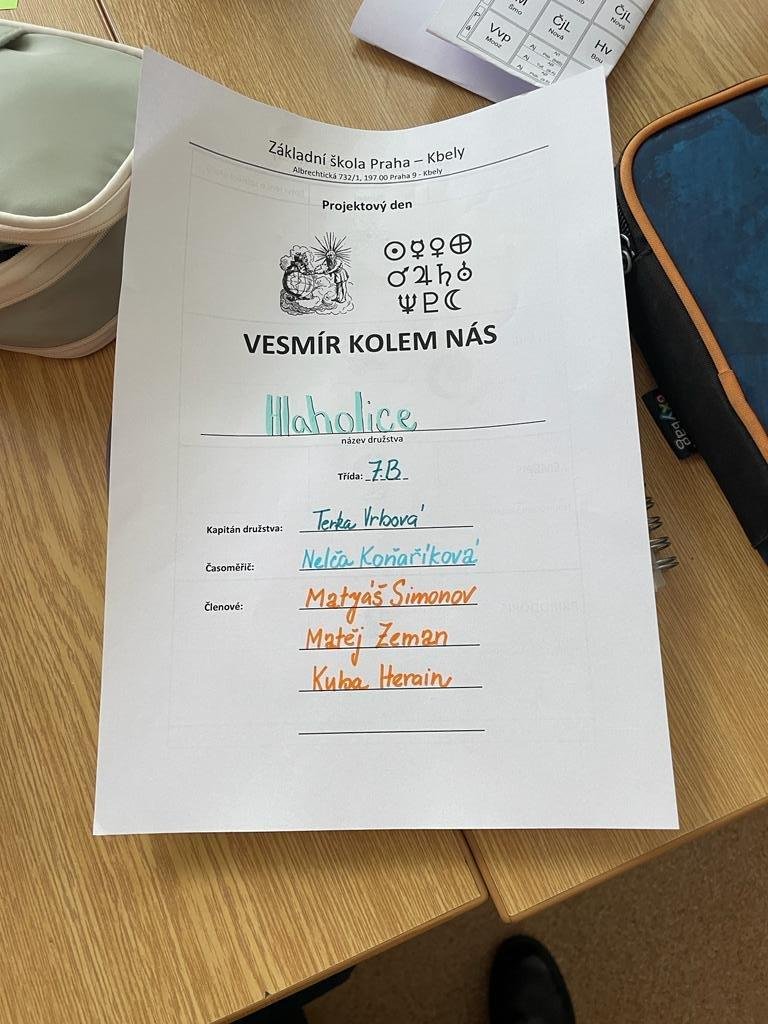 ČjL
Nová
Smo
ČjL
Nová
Vvp
Mooz
Hv
Bou
Aj
Aj
Základní škola Praha – Kbely
Albrechtická 732/1, 197 00 Praha 9 - Kbely
Projektový den
VESMÍR KOLEM NÁS
Hlaholice
název družstva
Třída: 7.B
Kapitán družstva: Terka Vrbová
Časoměřič: Nelča Koňaříková
Členové: Matyáš Simonov
Matěj Zeman
Kuba Herain
oxybag